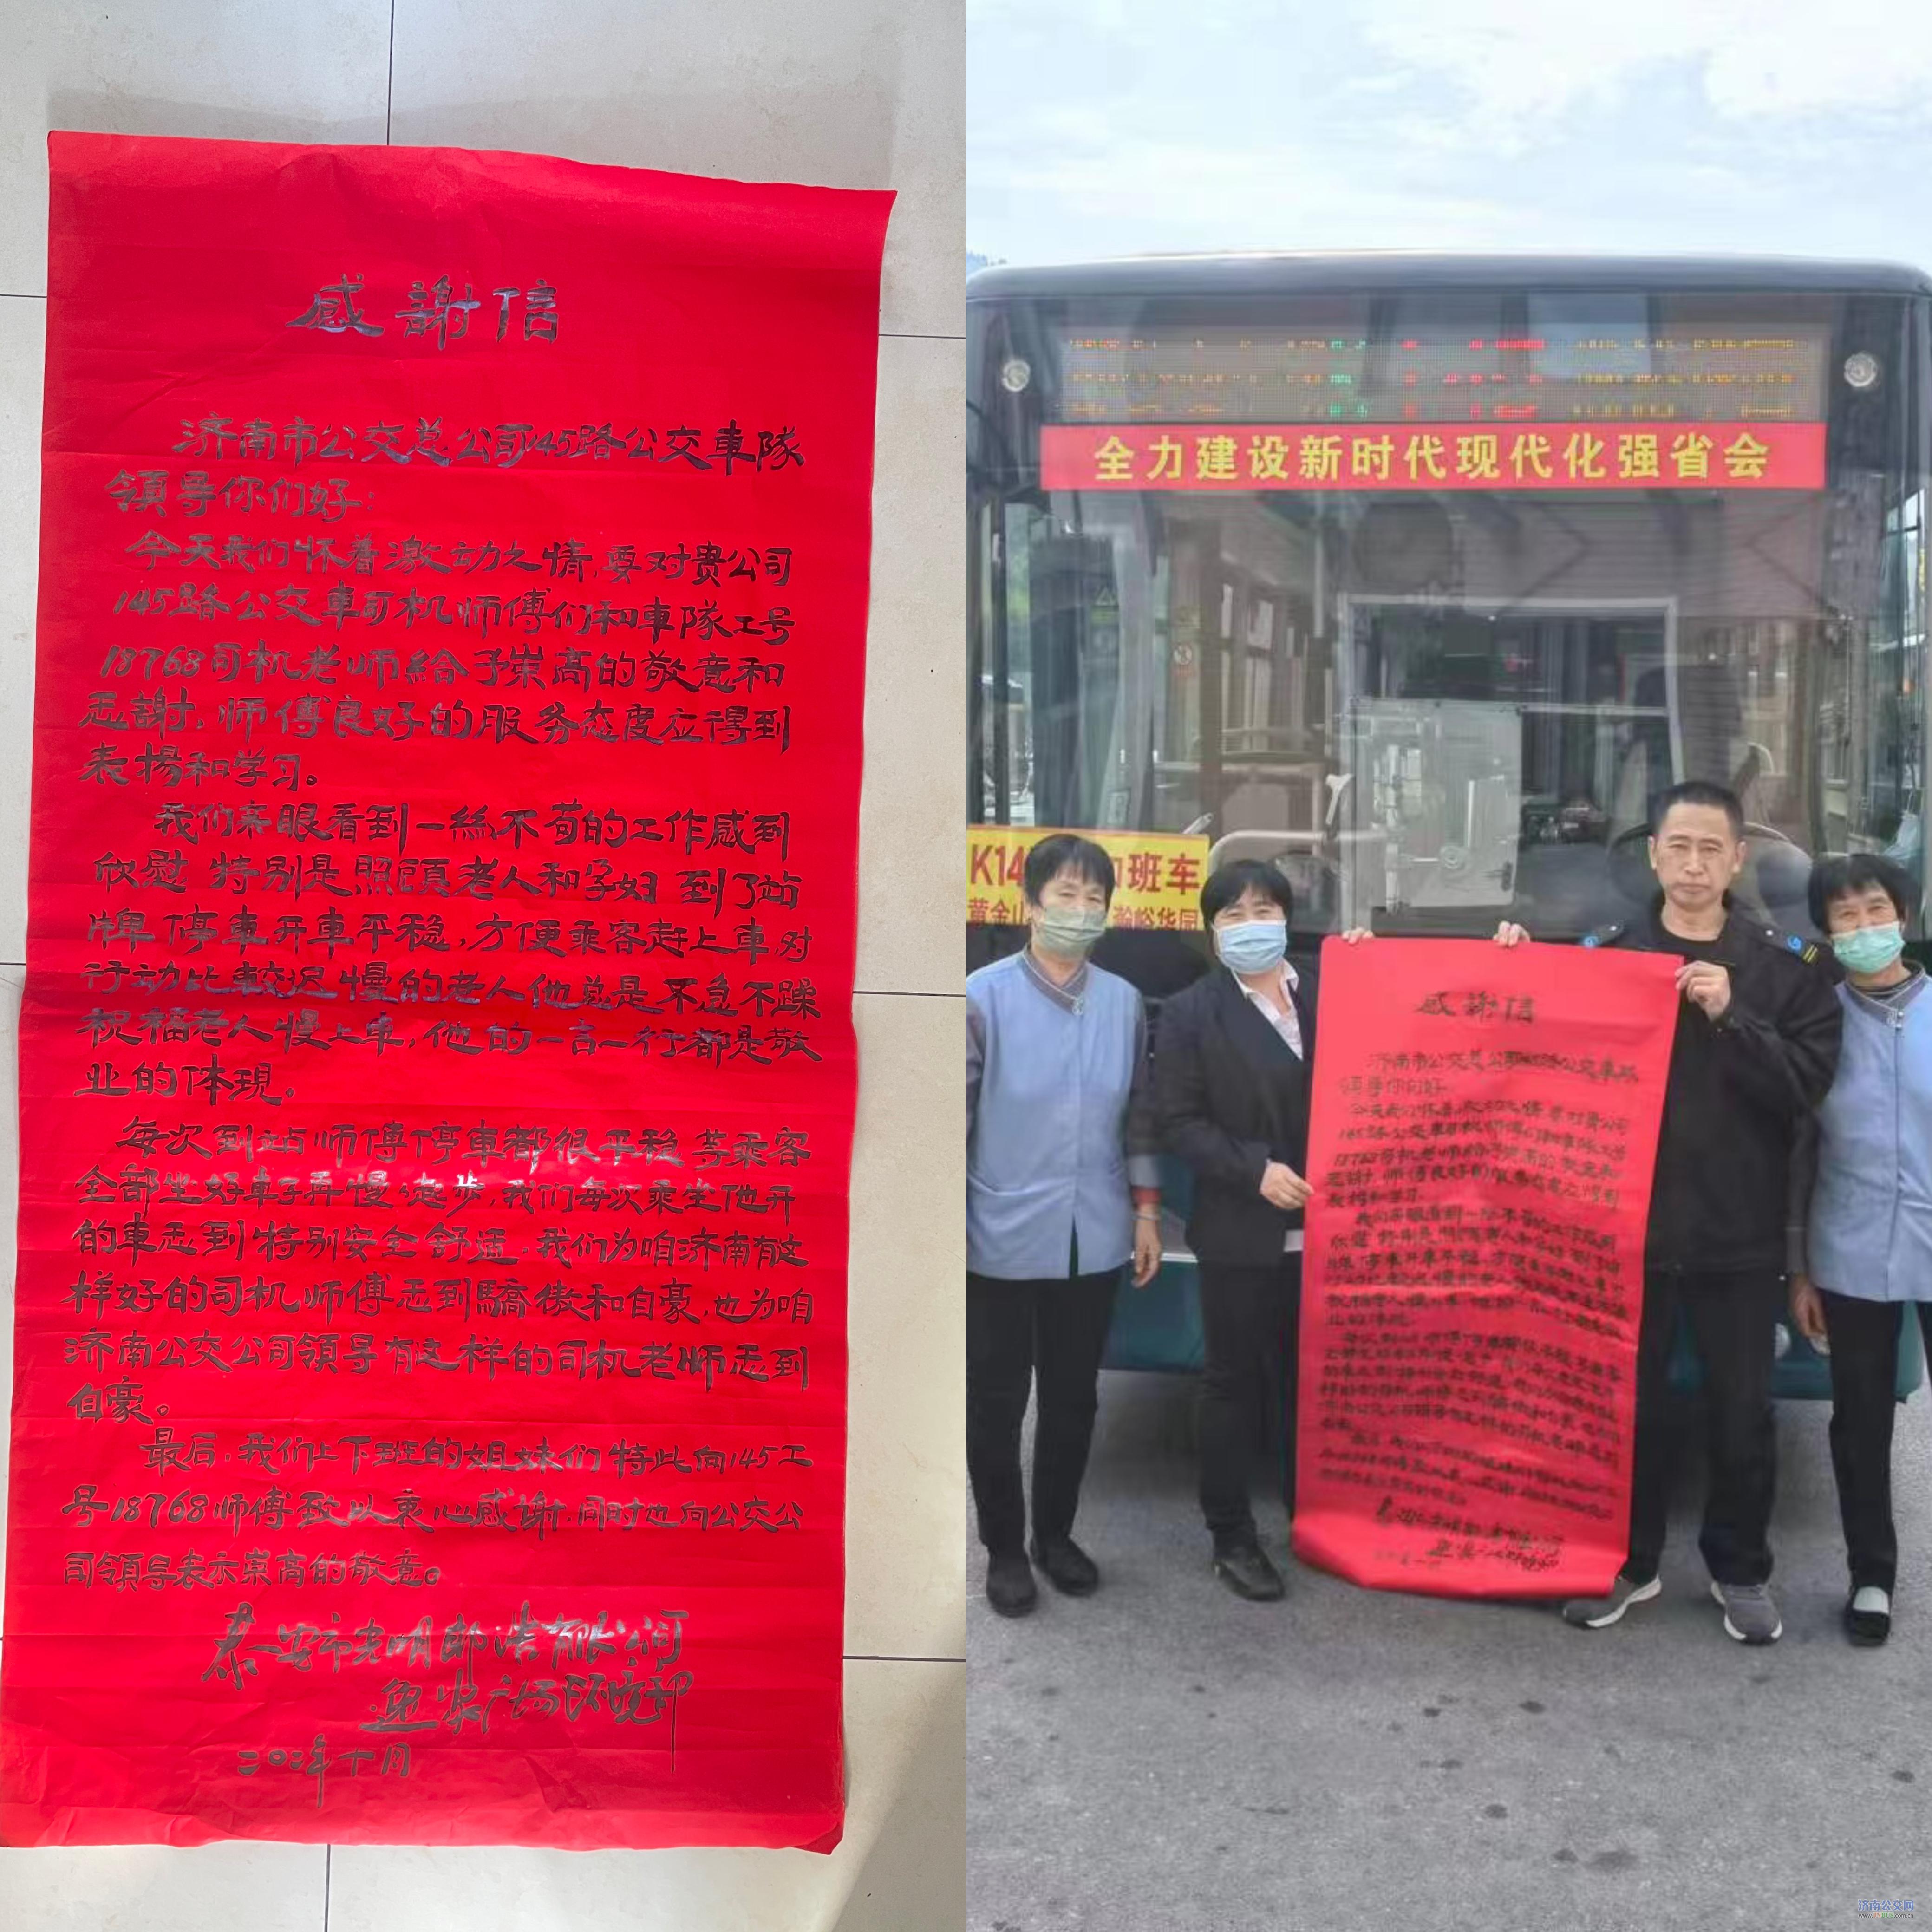 感謝信
济南市公交总公司145路公交車隊
領导你们好：
今天我们怀着激动之情，要对贵公司
145路公交車司机师傅们和車隊工号
18768司机老师給予崇高的敬意和
感謝，师傅良好的服务态度应得到
表揚和学习。
我们亲眼看到一絲不苟的工作感到
欣慰 特别是照顧老人和孕妇 到了站
牌 停車开車平稳，方便乘客赶上車，对
行动比較迟慢的老人他总是不急不躁
祝福老人慢上車，他的一言一行都是敬
业的体現。
每次到站师傅停車都很平稳 等乘客
全部坐好車子再慢慢起步，我们每次乘坐他开
的車感到特别安全舒适，我们为咱济南有这
样好的司机师傅感到驕傲和自豪，也为咱
济南公交公司領导有这样的司机老师感到
自豪。
最后，我们上下班的姐妹们特此向145工
号18768师傅致以衷心感谢，同时也向公交公
司領导表示崇高的敬意。
泰安市光明部洁有限公司
迎宾广场环境部
二〇二年十月
全力建设新时代现代化强省会
K14 班车
黄金山 瀚峪华园
感謝信
济南市公交总公司145路公交車隊
領导你们好
济南公交网